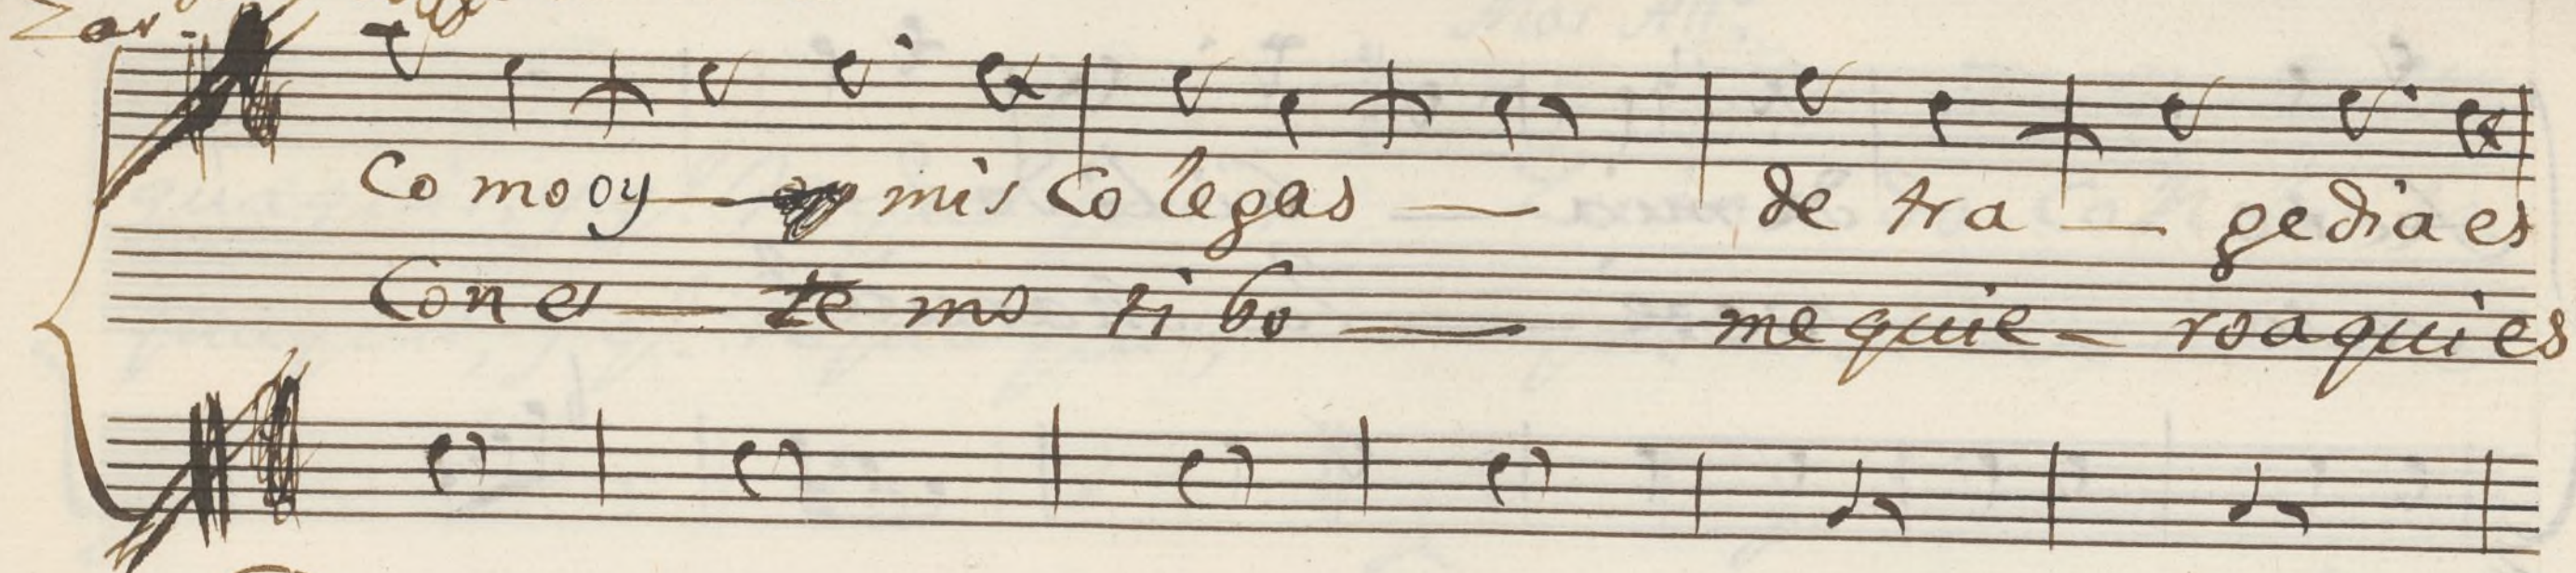 Zar.
Co mo oy — mis Co legas — de tra — gedia es
Con es — te mo ti bo — me quie — ro aqui es